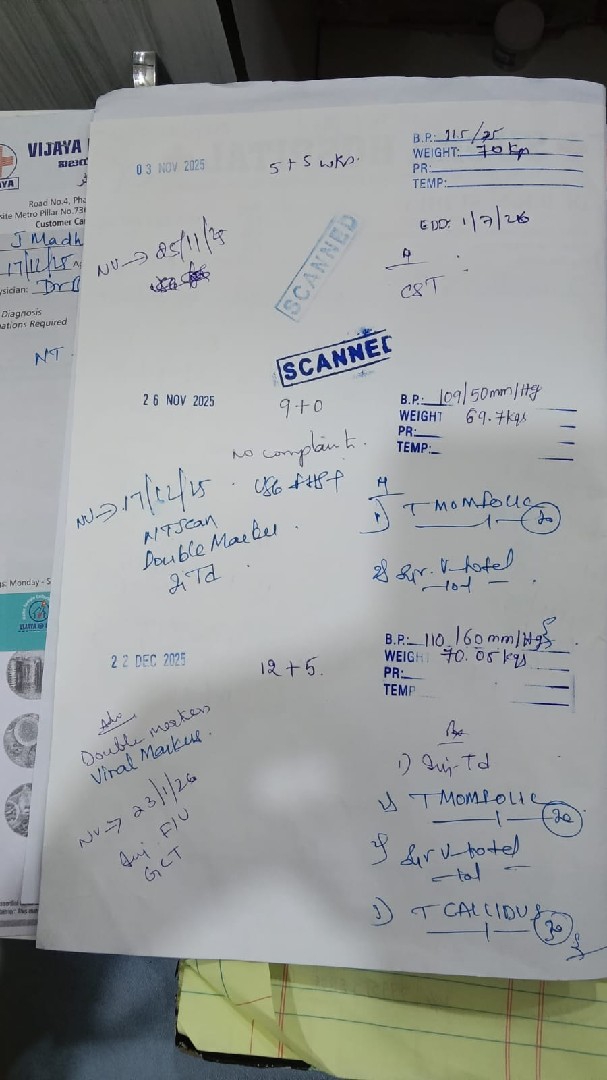 VIJAYA
Road No.4, Pha
site Metro Pillar No.73
Customer Ca
J Madh
17/12/25
sician: Dr
Diagnosis
ations Required
NT
s: Monday - S
03 NOV 2025
5+5 wks.
B.P.: 115/75
WEIGHT: 70 kgs
PR:
TEMP:
EDD: 1/7/26
NV→ 25/11/25
SCANNED
CST
SCANNED
26 NOV 2025
9+0
B.P.: 109/50mm/Hg
WEIGHT 69.7kgs
PR:
TEMP:
No complaint.
NV→ 17/12/25
NT Scan
Double Marker
Td
1) T MOMFOLIC
30
2) Syr. V-total
22 DEC 2025
12+5.
B.P.: 110/60mm/Hg
WEIGH 70.05kgs
PR:
TEMP
Adv
Double markers
Viral Markers.
NV→ 23/1/26
Inj. FIV
GCT
Rx
1) Inj. Td
2) T MOMFOLIC
30
Syr V-total
3) T CALLIDUS
30